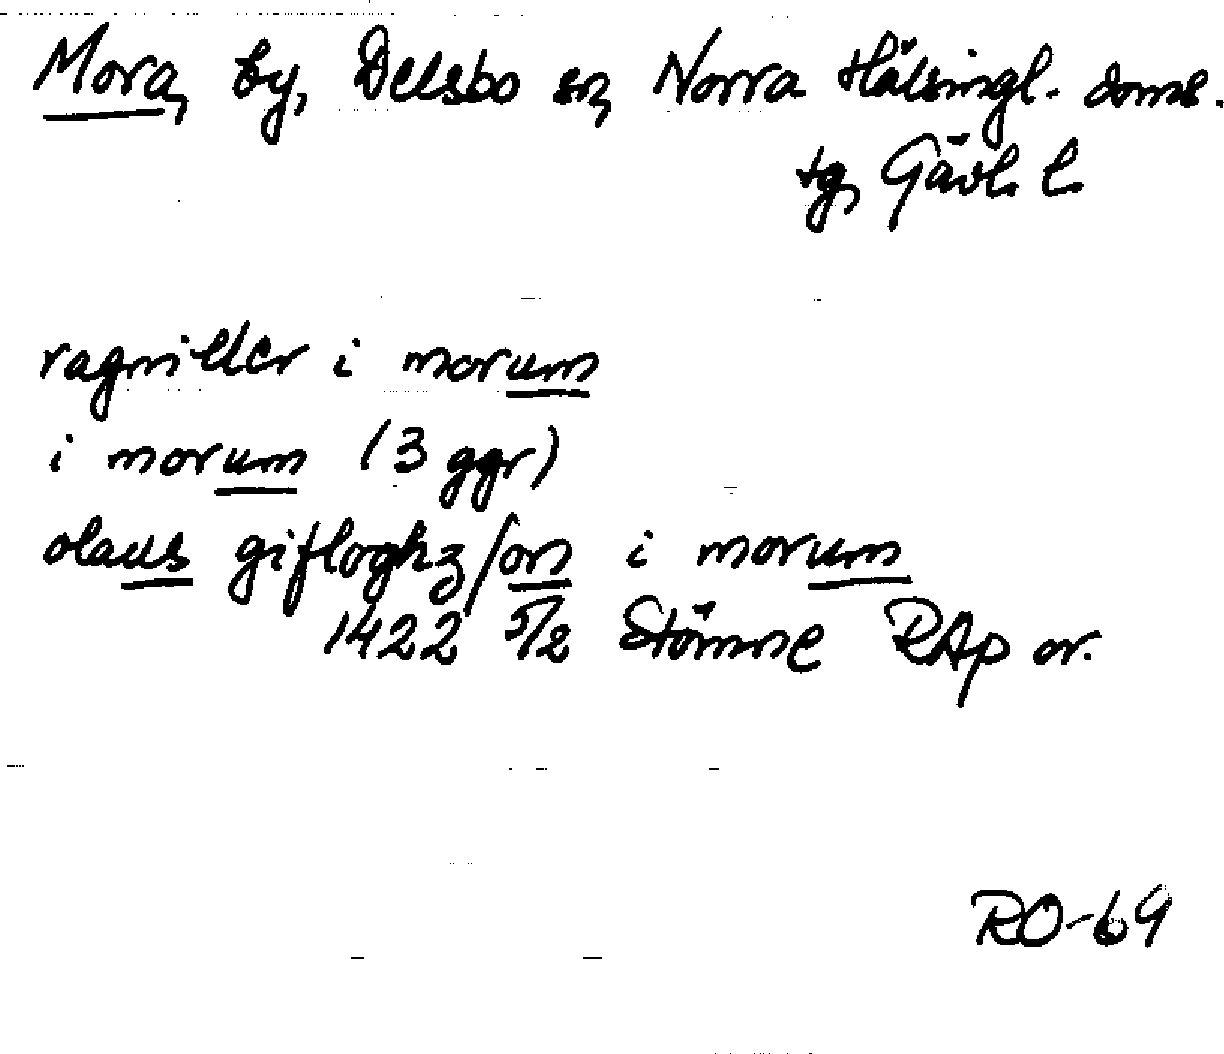 Mora, by, Delsbo sn, Norra Hälsingl. doms.
tg, Gävl. l.
ragnilder i morum
i morum (3 ggr)
olaus gifloghz/on i morum
1422 5/2 Stömne RAp or.
RO-69